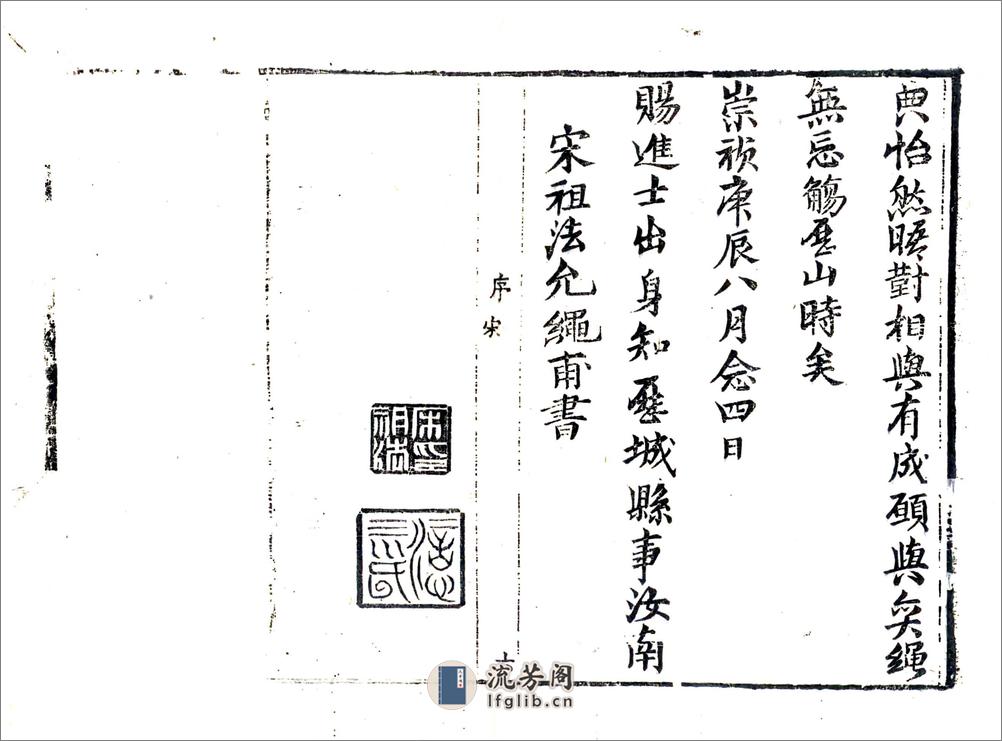 典怡然晤對相與有成願與奕繩
無忘觴歷山時矣
崇禎庚辰八月念四日
賜進士出身知歷城縣事汝南
宋祖法允繩甫書
序宋
宋印祖法
流芳阁
lfglib.cn